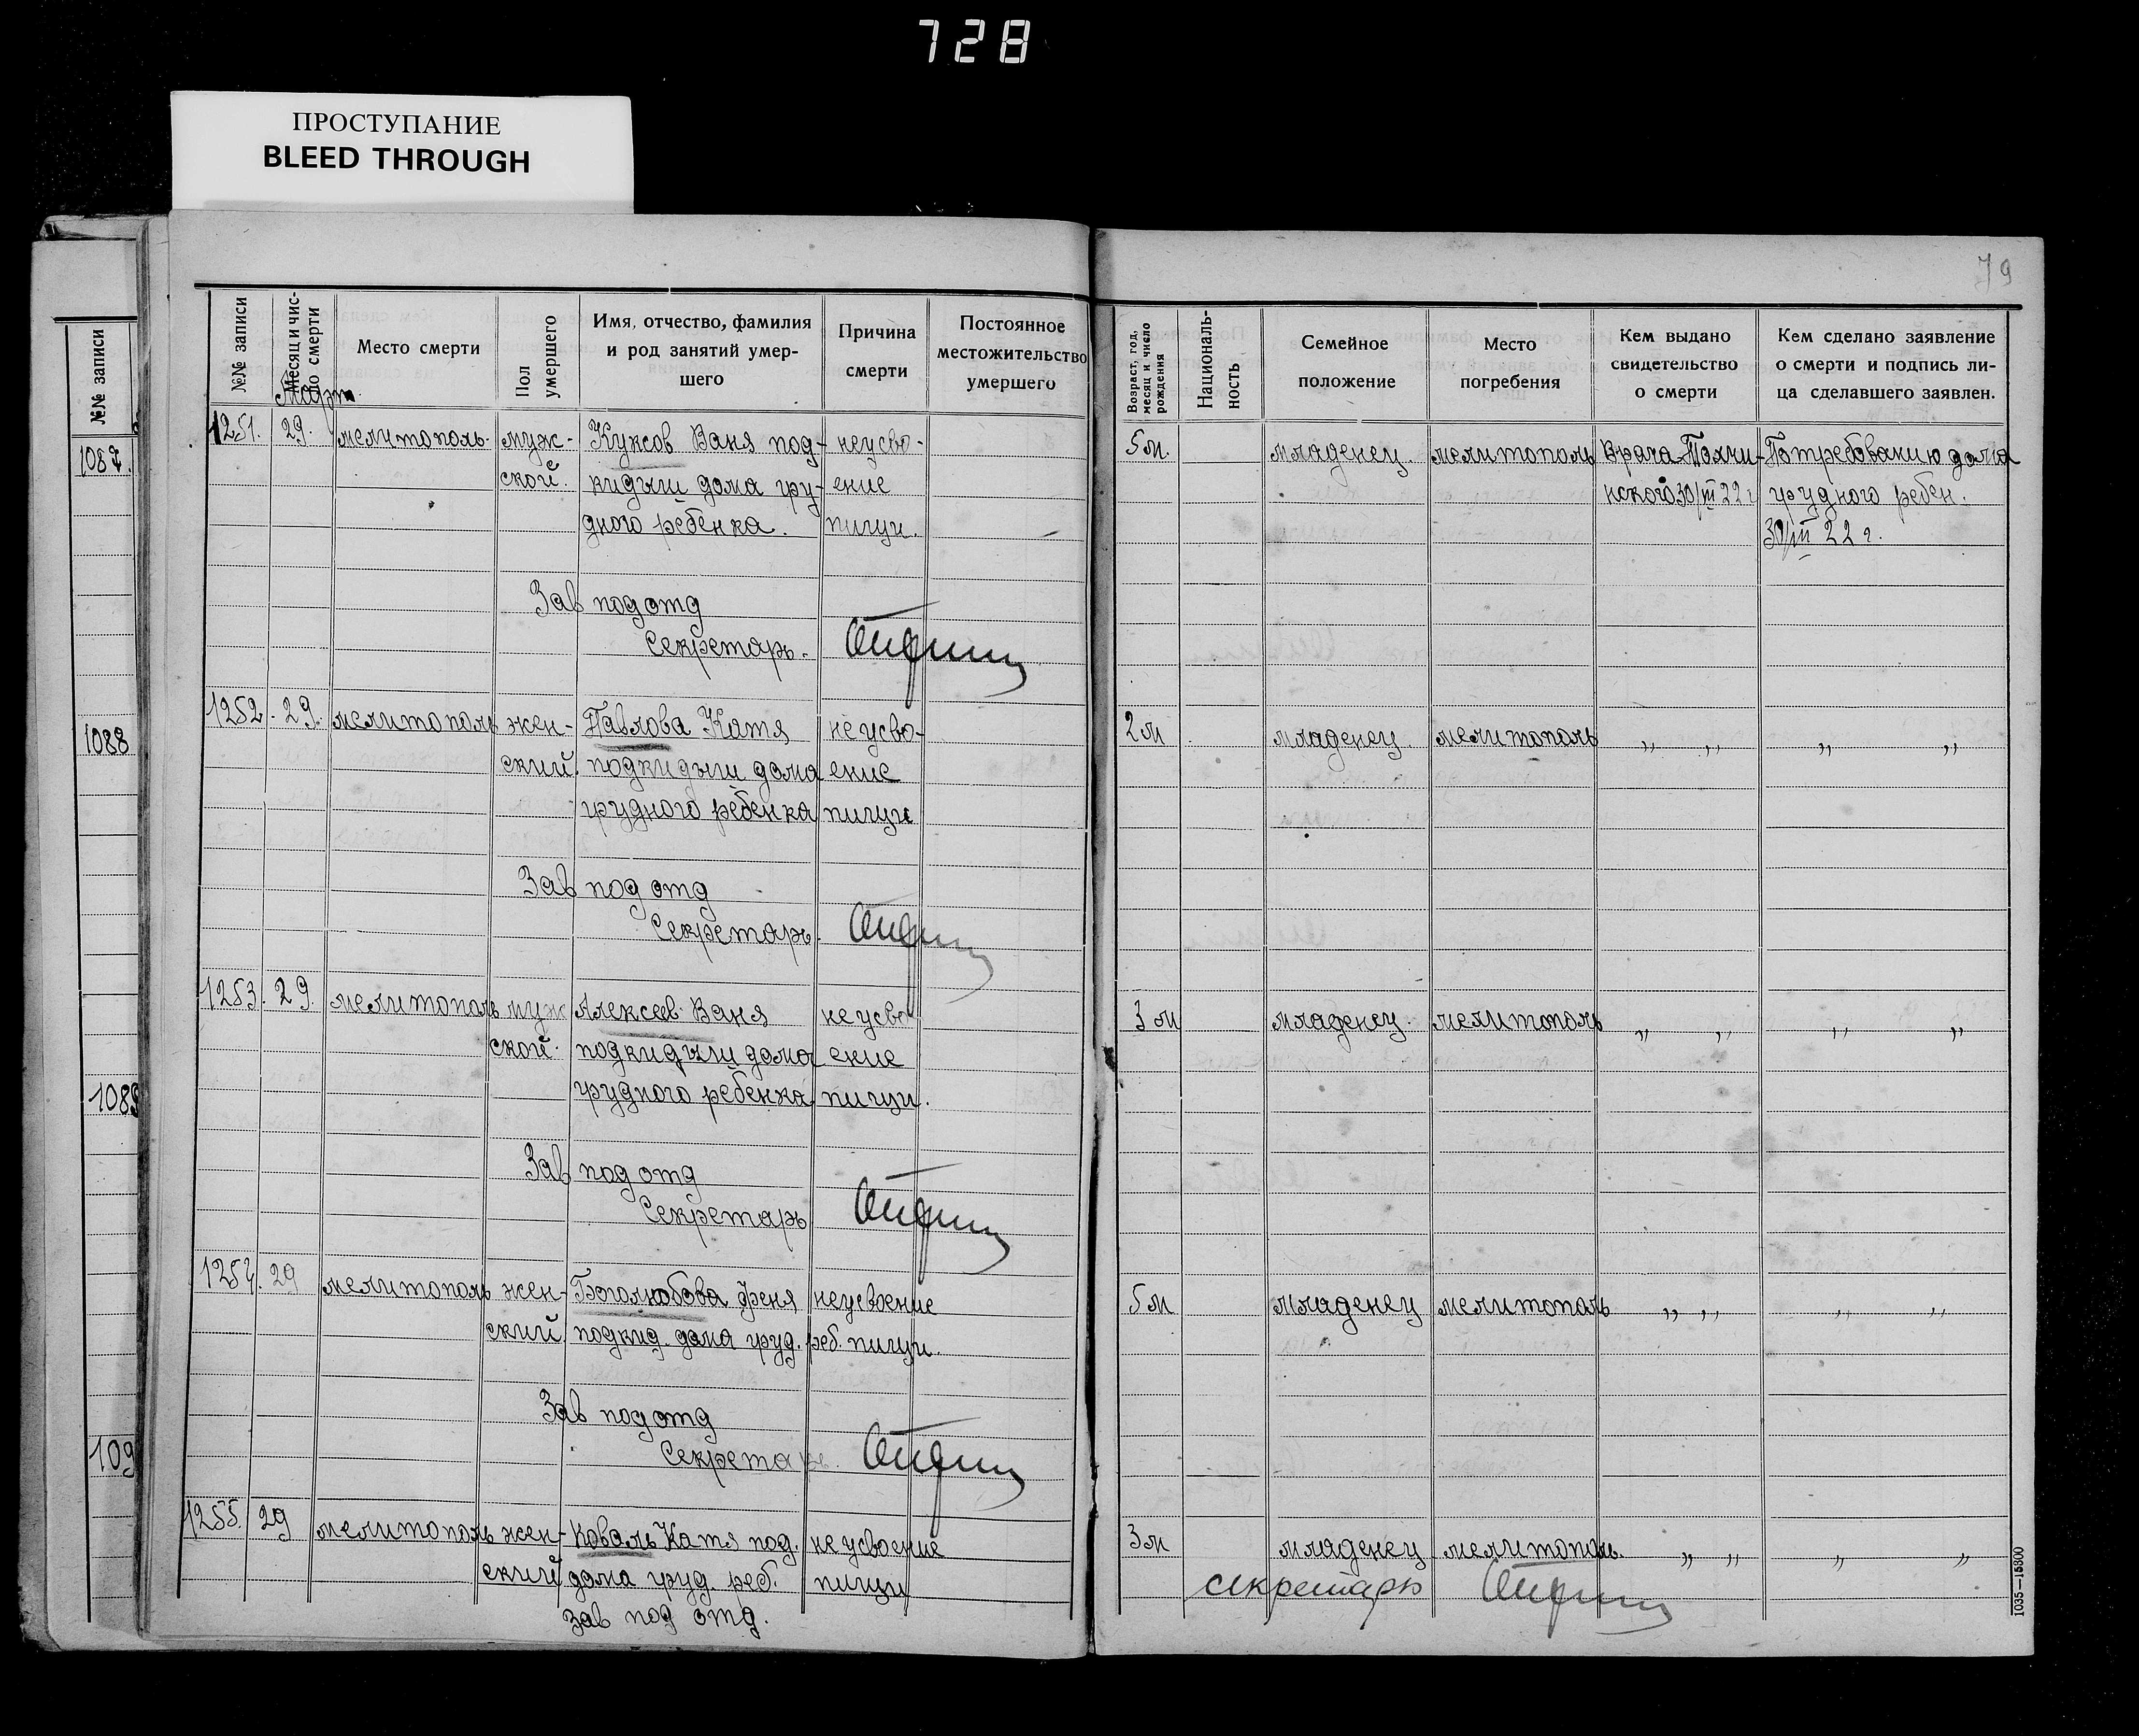 728
ПРОСТУПАНИЕ
BLEED THROUGH
79
№№ записи
1087.
1088
1089
109
№№ записи
Месяц и число смерти
Место смерти
Пол умершего
Имя, отчество, фамилия
и род занятий умер-
шего
Причина
смерти
Постоянное
местожительство
умершего
Возраст, год, месяц и число рождения
Националь-
ность
Семейное
положение
Место
погребения
Кем выдано
свидетельство
о смерти
Кем сделано заявление
о смерти и подпись ли-
ца сделавшего заявлен.
Март
1251. 29. мелитополь. муж- Ваня под- неусво- 5 м. младенец. мелитополь Врача По требованию дома
ской. кидыш дома гру- ение нского 30/III 22 г грудного ребен.
дного ребенка. пищи. 30/III 22 г.
Зав подотд
Секретарь.
1252. 29. мелитополь жен- Павлова Катя неусво- 2 м младенец. мелитополь „ „ „ „
ский. подкидыш дома ение
грудного ребенка пищи
Зав подотд
Секретарь.
1253. 29. мелитополь муж Алексеев Ваня неусво 3 м младенец. мелитополь „ „ „ „
ской. подкидыш дома ение
грудного ребенка пищи.
Зав подотд
Секретарь
1254. 29 мелитополь жен- Боголюбова Феня неусвоение 5 м младенец мелитополь „ „ „ „
ский подкид. дома груд. реб. пищи.
Зав подотд
Секретарь.
1255. 29 мелитополь жен- Коваль Катя под. неусвоение 3 м младенец мелитополь. „ „ „ „
ский дома груд. реб. пищи секретарь
зав под отд.
1035—15800